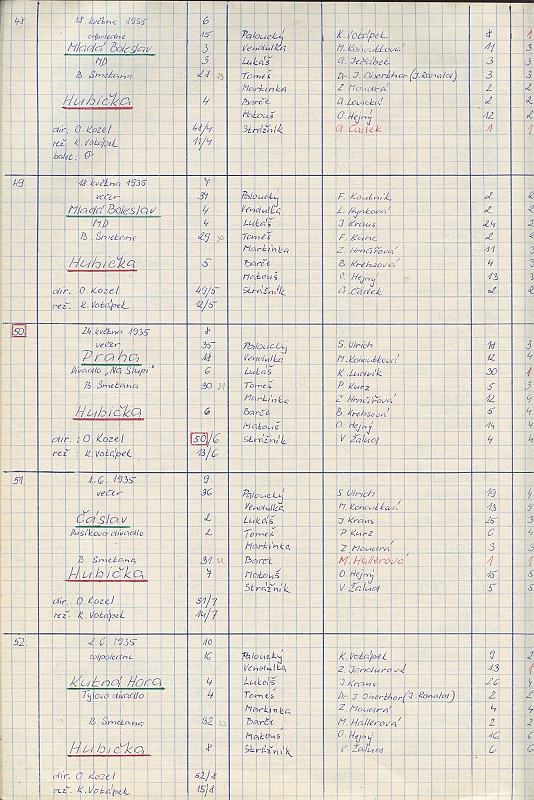 48 18 května 1935 6
odpoledne 15 Paloucký K. Votápek 8 1
Mladá Boleslav 3 Vendulka M. Kohoutková 11 3
MD 3 Lukáš A. Jeřábek 3 3
B. Smetana 28 29 Tomeš Dr. J. Oberthor (J. Ronald) 3 3
Martinka Z Moudrá 2 2
Hubička 4 Barče A. Levická 2 2
Matouš O. Hejný 12 2
dir. O Kozel 48/4 Strážník A. Čadek 1 1
rež. K. Votápek 11/4
balet. Ø
49 18 května 1935 7
večer 34 Paloucký F. Koutník 2 2
Mladá Boleslav 4 Vendulka L. Hynková 2 2
MD 4 Lukáš J Kraus 24 2
B. Smetana 29 30 Tomeš F. Kunc 2 2
Martinka Z. Hrnčířová 11 3
Hubička 5 Barče B Krebsová 4 3
Matouš O. Hejný 13 3
dir. O Kozel 49/5 Strážník A. Čadek 2 2
rež. K. Votápek 12/5
50 24 května 1935 8
večer 35 Paloucký S. Ulrich 18 3
Praha 18 Vendulka M. Kohoutková 12 4
Divadlo „Na Slupi" 6 Lukáš K. Ludvík 30 1
B. Smetana 30 31 Tomeš P. Kurz 5 3
Martinka Z. Hrnčířová 12 4
Hubička 6 Barče B. Krebsová 5 4
Matouš O. Hejný 14 4
dir.: O Kozel 50/6 Strážník V Žalud 4 4
rež: K. Votápek 13/6
51. 1. 6. 1935 9
večer 36 Paloucký S Ulrich 19 4
Vendulka M. Kohoutková 13 5
Čáslav 2 Lukáš J. Kraus 25 3
Dusíkovo divadlo 2 Tomeš P Kurz 6 4
Martinka Z. Moudrá 3 3
B Smetana 31 32 Barče M. Hallerová 1 1
Hubička 7 Matouš O. Hejný 15 5
Strážník V Žalud 5 5
dir. O Kozel 51/7
rež. K. Votápek 14/7
52. 2. 6. 1935 10
odpoledne 16 Paloucký K. Votápek 9 2
Vendulka Z. Jandurová 13 1
Kutná Hora 4 Lukáš J Kraus 26 4
Tylovo divadlo 4 Tomeš Dr. J Oberthor (J Ronald) 2 2
Martinka Z Moudrá 4 4
B Smetana 32 33 Barče M. Hallerová 2 2
Matouš O. Hejný 16 6
Hubička 8 Strážník V Žalud 6 6
dir. O Kozel 52/8
rež. K Votápek 15/8